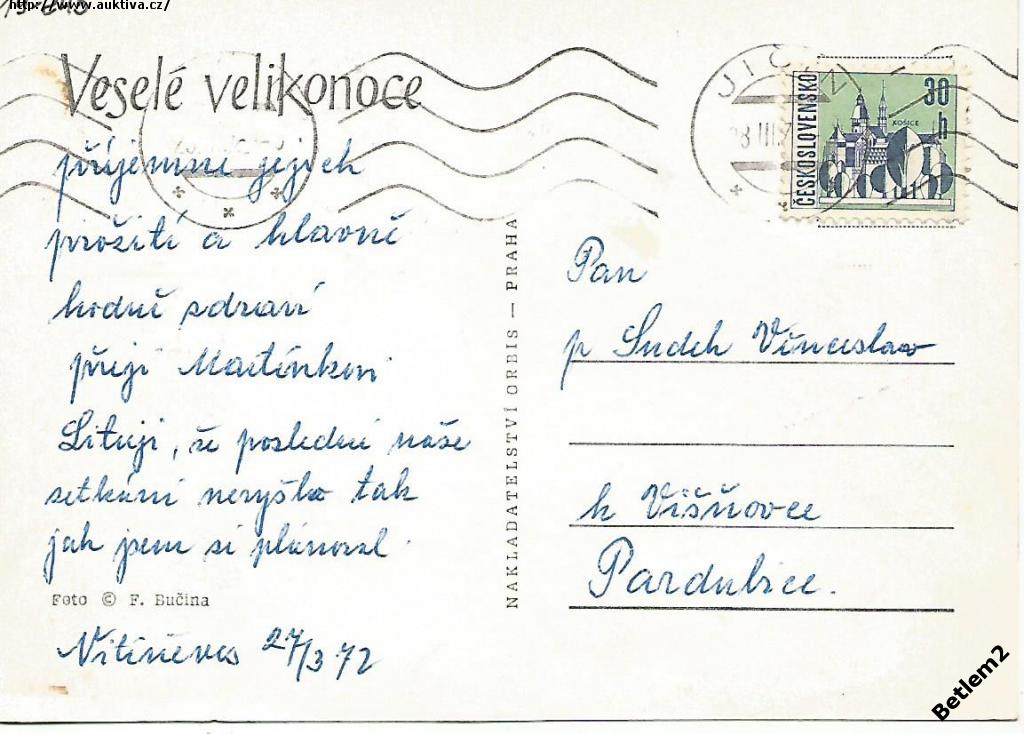 http://www.auktiva.cz/
Veselé velikonoce
příjemné jejich
prožití a hlavně
hodně zdraví
přeji Martínkovi
Lituji, že poslední naše
setkání nevyšlo tak
jak jsem si plánoval.
Foto © F. Bučina
27/3 72
NAKLADATELSTVÍ ORBIS — PRAHA
JIČÍN
ČESKOSLOVENSKO
30
h
KOŠICE
Pan
p Sudek Vínceslav
k Višňovce
Pardubice.
Betlem2